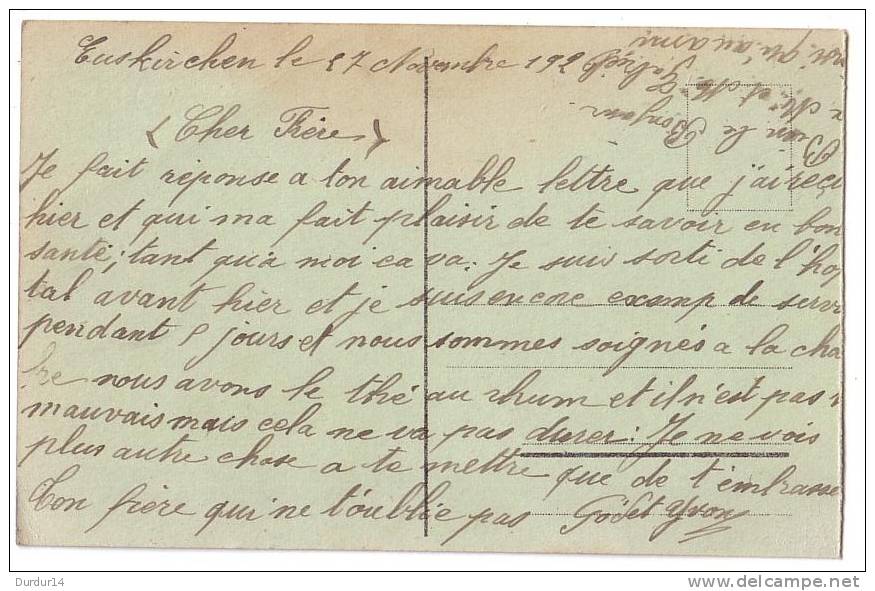 Euskirchen le 27 Novembre 192
Bien le Bonjour
(Cher Frère)
Je fait réponse a ton aimable lettre que j'ai reçu
hier et qui ma fait plaisir de te savoir en bon
santé; tant qu'a moi ca va. Je suis sorti de l'hop
tal avant hier et je suis encore exemp de serv
pendant 5 jours et nous sommes soignés a la cha
bre nous avons le thé au rhum et il n'est pas
mauvais mais cela ne va pas durer: Je ne vois
plus autre chose a te mettre que de t'embrasse
Ton frère qui ne t'oublie pas Godet Yvon
Durdur14
www.delcampe.net